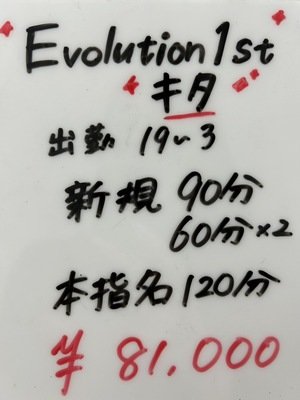 Evolution 1st
キタ
出勤 19〜3
新規 90分
60分×2
本指名 120分
¥ 81,000